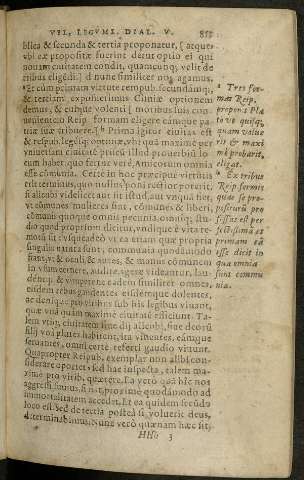 VEL, LEGVM. DIAL. V. 855
blica & secunda & tertia proponatur, [atque
vbi ex propositæ fuerint detur optio ei qui
nouam ciuitatem condit, quamcunq; velit de
tribus eligēdi.] d nunc similiter nos agamus,
Et cùm primam virtute rempub. secundámq;
& tertiam exposuerimus Cliniæ optionem
demus, & cuiq; volenti, moribus suis con-
uenientem Reip. formam eligere támque pa-
triæ suæ tribuere. [b Prima igitur ciuitas est
& respub. legésq; optimæ, vbi quā maximè per
vniuersam ciuitatē priscū illud prouerbiū lo-
cum habet quo fertur verè, Amicorum omnia
esse cōmunia. Certe in hoc præcipuè virtutis
erit terminus, quo nullus poni rectior poterit,
si alicubi videlicet aut fit istud, aut vnquā fiet,
vt cōmunes mulieres sint, cōmunes & liberi,
cōmunis quoque omnis pecunia, omniq; stu-
dio quod proprium dicitur, vndique è vita re-
motū sit: vsqueádeò vt ea etiam quæ propria
singulis natura sunt, communia quodāmodo
fiant, vt & oculi, & aures, & manus cōmunem
in vsum cernere, audire, agere videantur, lau-
dētq; & vituperēt eadem similiter omnes,
eisdem rebus gaudentes eisdémque dolentes,
ac denique pro viribus sub his legibus viuant,
quæ vnā quàm maximè ciuitatē efficiunt. Ta-
lem vtiq; ciuitatem siue dij alicubi, siue deorū
filij vna plures habitent, ita viuentes, eásmque
seruantes, omni certè referti gaudio viuunt.
Quapropter Reipub. exemplar non alibi con-
siderare oportet, sed hac inspecta, talem ma-
ximè pro virib. quærere. Ea verò quā hîc nos
aggressi sumus, si fiat, proximè quodāmodo ad
immortalitatem accedet. Et ea quidem secūdo
loco est. Sed de tertia posteà si voluerit deus,
determinabimus. Nunc verò quænam hæc sit,
Hhh 3
a Tres for-
mas Reip.
proponi Pla
to vt quisq;
quam value
rit & maxi
mè probarit,
eligat.
b Ex tribus
Reip. formis
quas se pro-
positurum pro
fessus est per
fectissimā et
primam eā
esse dicit in
qua omnia
sunt commu
nia.